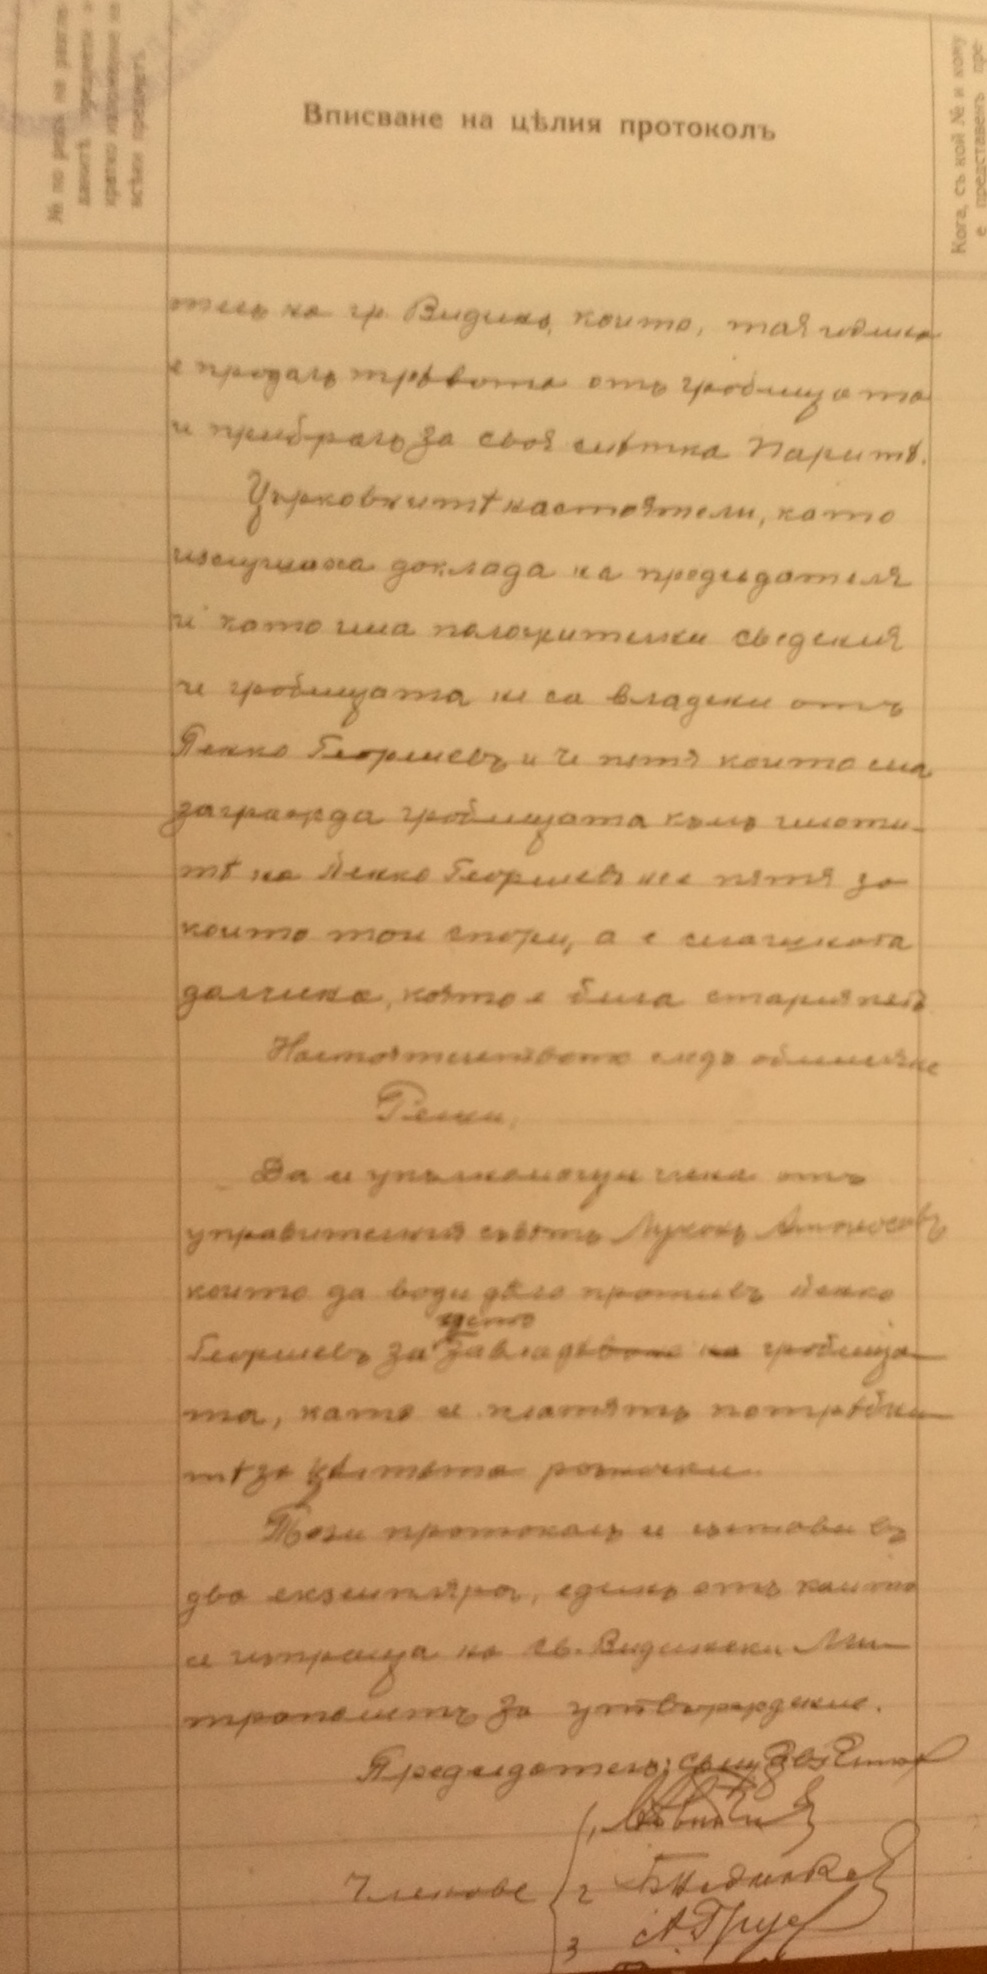 № по редъ на разгле-
данитѣ предмети и
кратко изложение на
всѣки предметъ
Вписване на цѣлия протоколъ
Кога, съ кой № и кому
е представенъ пре-
тель на гр. Видинъ, които, тая година
е продалъ трѣвата отъ гробищата
и прибралъ за своя смѣтка паритѣ.
Църковнитѣ настоятели, като
изслушаха доклада на председателя
и като има положителни сведения
че гробищата не са владени отъ
Пенко Георгиевъ и че пѫтя които сла
загражда гробищата къмъ имоти-
тѣ на Пенко Георгиевъ не е пѫтя за
които той спори, а е
долчина, която е била стария пѫть
Настоятелството следъ обмисляне
Реши,
Да се упълномощи члена отъ
управителния съветъ
които да води дѣло противъ Пенко
дето
Георгиевъ за завладѣване на гробища-
та, като се платятъ потрѣбни-
тѣ за цѣльта разноски.
Този протоколъ се състави въ
два екземпляра, единъ отъ които
се изпраща на Св. Видински Ми-
трополитъ за утвърждение.
Председатель: свещ.
1,
Членове 2
3